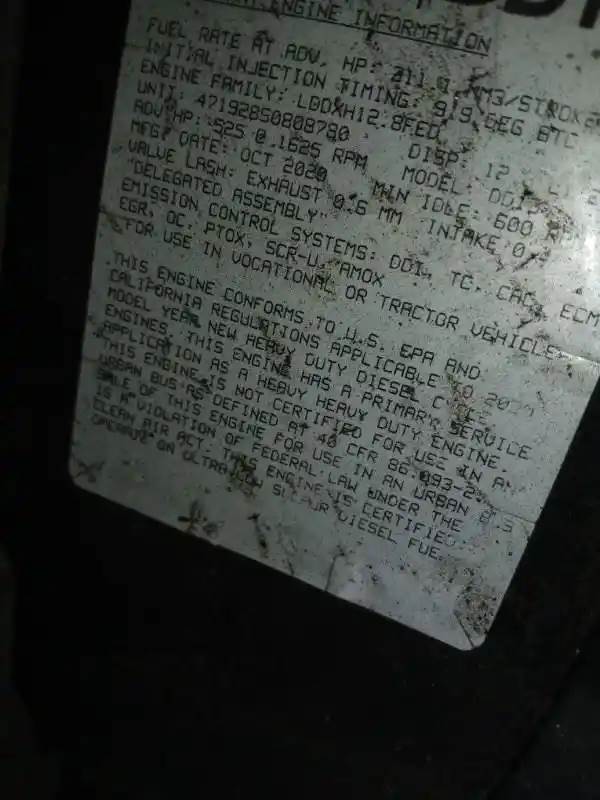 ENGINE INFORMATION
FUEL RATE AT ADV. HP: 311. MM3/STROKE
INITIAL INJECTION TIMING: 9.9 DEG BTC
ENGINE FAMILY: LDDXH12.8FED DISP: 12.
UNIT: 47192850808780 MODEL: DD13
ADV HP: 525 @ 1625 RPM MIN IDLE: 600 RPM
MFG DATE: OCT 2020
VALVE LASH: EXHAUST 0.6 MM INTAKE
"DELEGATED ASSEMBLY"
EMISSION CONTROL SYSTEMS: DDI, TC, CAC, ECM
EGR, OC, PTOX, SCR-U, AMOX
FOR USE IN VOCATIONAL OR TRACTOR VEHICLES
THIS ENGINE CONFORMS TO U.S. EPA AND
CALIFORNIA REGULATIONS APPLICABLE TO 2020
MODEL YEAR NEW HEAVY DUTY DIESEL
ENGINES. THIS ENGINE HAS A PRIMARY SERVICE
APPLICATION AS A HEAVY HEAVY DUTY ENGINE.
THIS ENGINE IS NOT CERTIFIED FOR USE IN AN
URBAN BUS AS DEFINED AT 40 CFR 86.093-2
SALE OF THIS ENGINE FOR USE IN AN URBAN BUS
IS A VIOLATION OF FEDERAL LAW UNDER THE
CLEAN AIR ACT. THIS ENGINE IS CERTIFIED
OPERATE ON ULTRA LOW SULFUR DIESEL FUEL